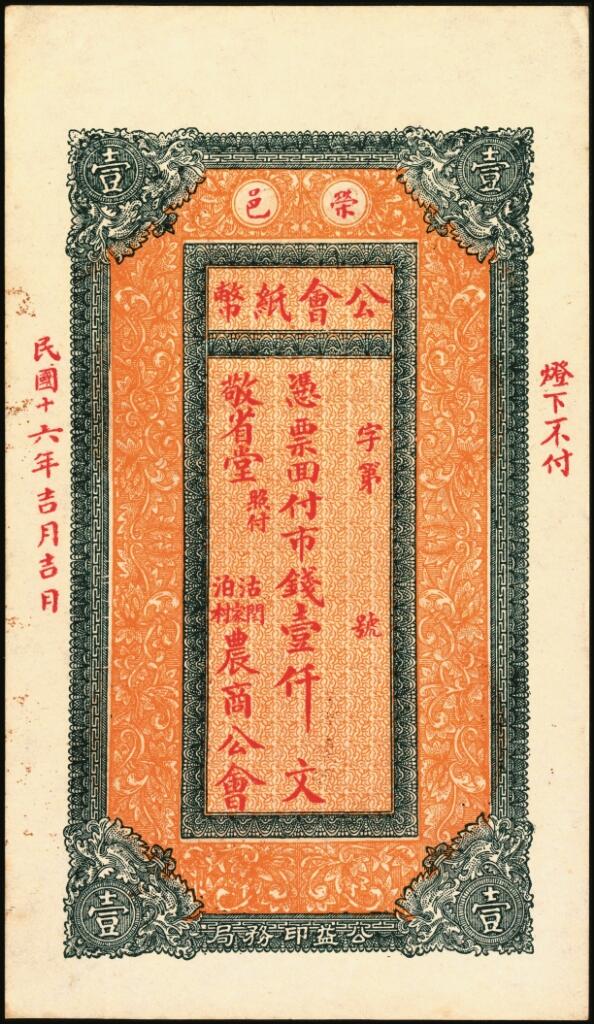 壹 壹
榮邑
公會紙幣
字第 號
憑票回付市錢壹仟文
敬省堂 照付
沽泊 村 農商公會
燈下不付
民國十六年吉月吉日
壹 壹
公益印務局